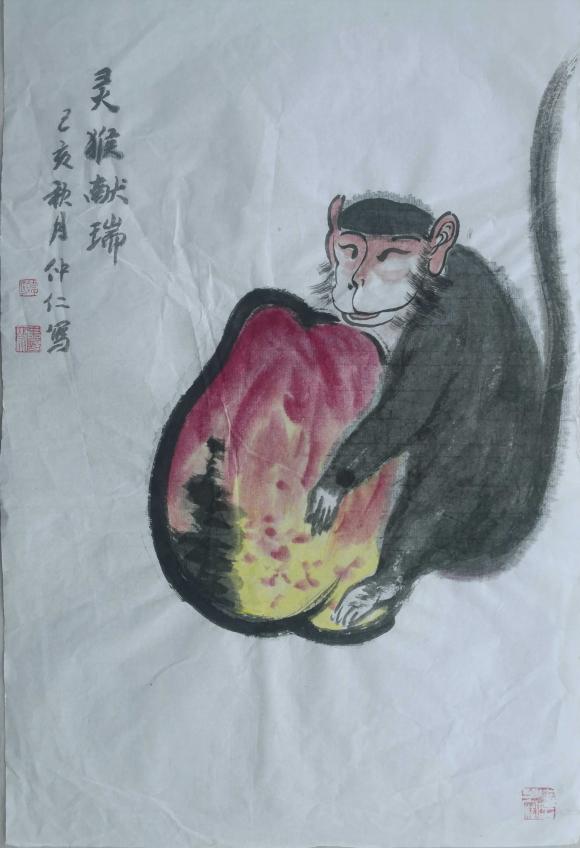 灵猴献瑞
己亥秋月仲仁写